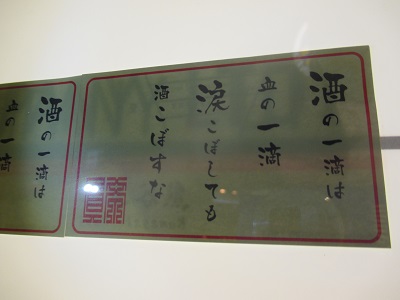 酒の一滴は
血の一滴
涙こぼしても
酒こぼすな
酒の一滴は
血の一滴